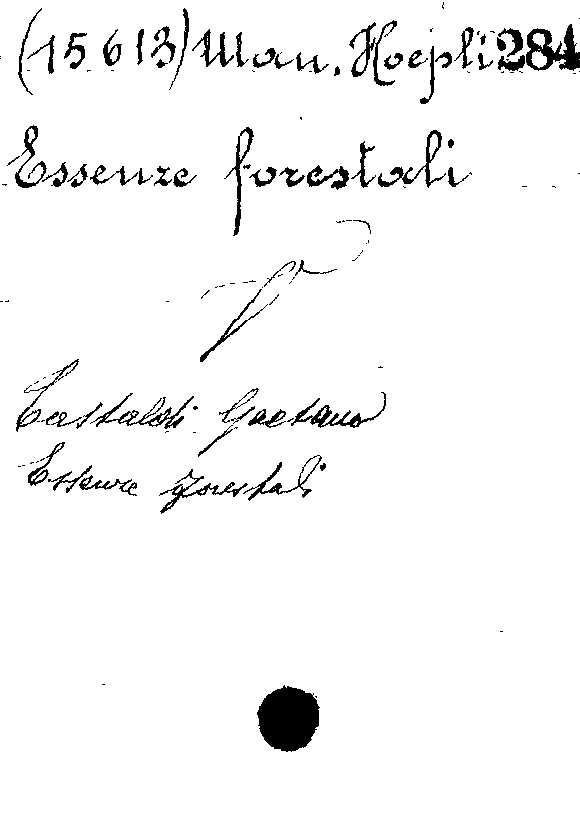 (15613) Man. Hoepli 284
Essenze forestali
V
Castaldi Gaetano
Essenze forestali